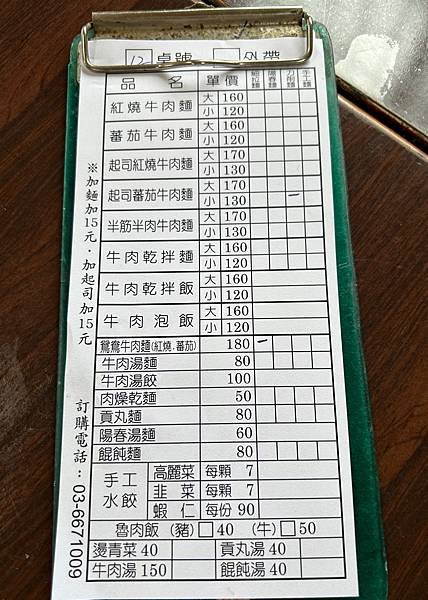 12 桌號 外帶
品名 單價 細拉麵 陽春麵 刀削麵 手工麵
紅燒牛肉麵 大 160
小 120
蕃茄牛肉麵 大 160
小 120
起司紅燒牛肉麵 大 170
小 130
起司蕃茄牛肉麵 大 170
小 130
半筋半肉牛肉麵 大 170
小 130
牛肉乾拌麵 大 160
小 120
牛肉乾拌飯 大 160
小 120
牛肉泡飯 大 160
小 120
鴛鴦牛肉麵(紅燒.蕃茄) 180
牛肉湯麵 80
牛肉湯餃 100
肉燥乾麵 50
貢丸麵 80
陽春湯麵 60
餛飩麵 80
手工水餃 高麗菜 每顆 7
韭菜 每顆 7
蝦仁 每份 90
魯肉飯(豬) 40 (牛) 50
燙青菜 40 貢丸湯 40
牛肉湯 150 餛飩湯 40
※加麵加15元．加起司加15元
訂購電話：03-6671009